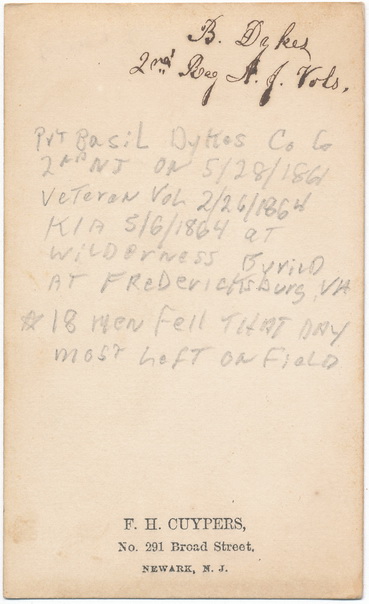 B. Dykes
2nd Reg N. J. Vols.
Pvt Basil Dykes Co G
2nd NJ ON 5/28/1861
Veteran Vol 2/26/1864
KIA 5/6/1864 at
Wilderness Byried
AT Fredericksburg, VA
*18 men Fell THAT DAY
most Left ON Field
F. H. CUYPERS,
No. 291 Broad Street,
NEWARK, N. J.